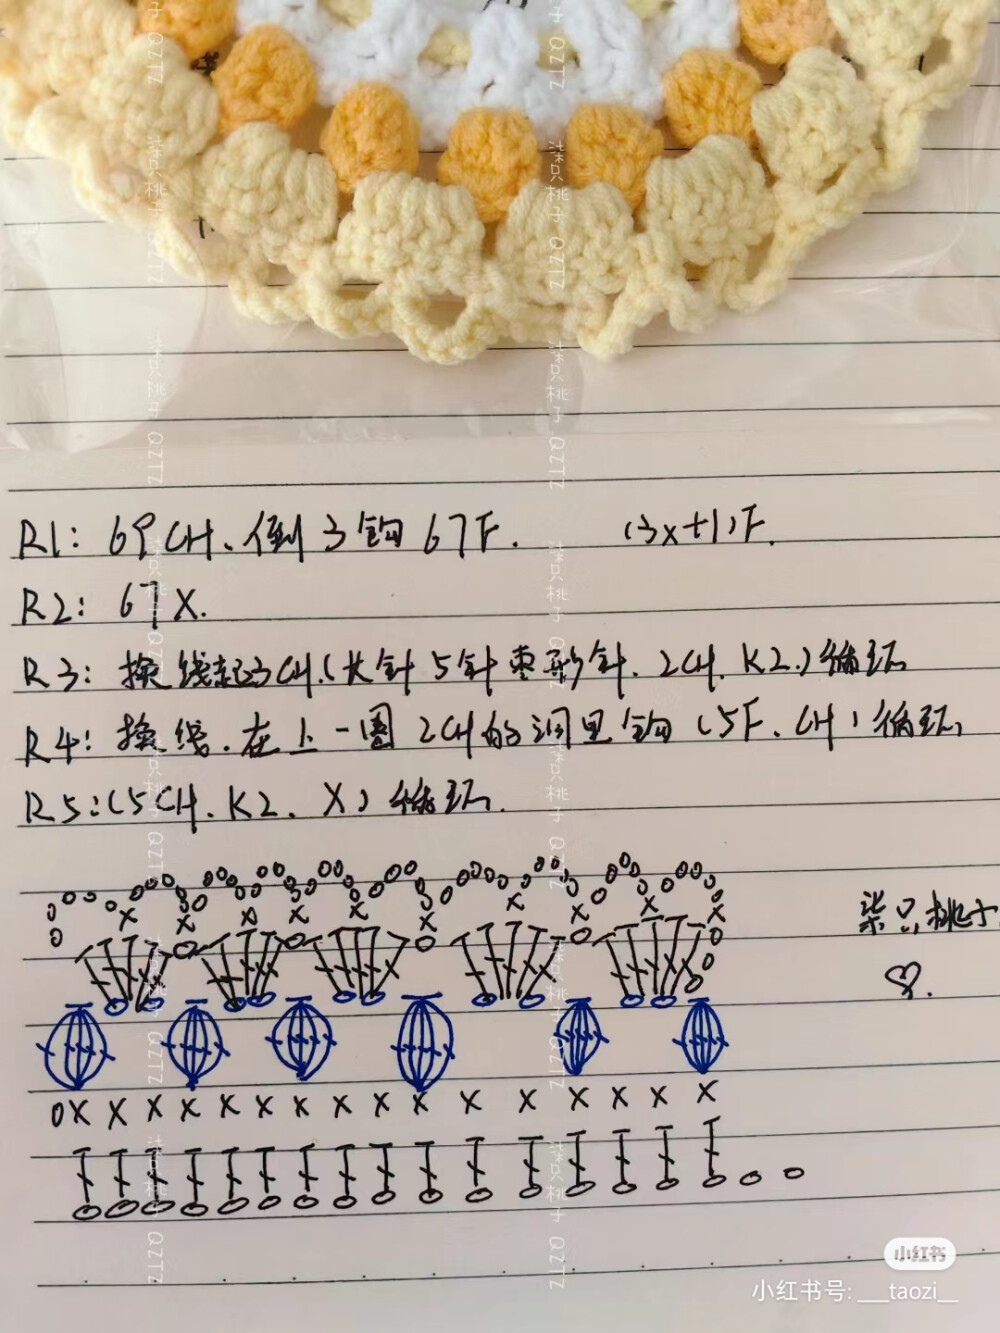 R1: 69CH、倒3钩67F. (3x+1)F.
R2: 67X.
R3: 换线起3CH.(长针5针枣形针. 2CH. K2.)循环
R4: 换线. 在上一圈2CH的洞里钩(5F. CH)循环.
R5: (5CH. K2. X)循环.
柒只桃子
柒只桃子 QZTZ
小红书
小红书号: ___taozi__